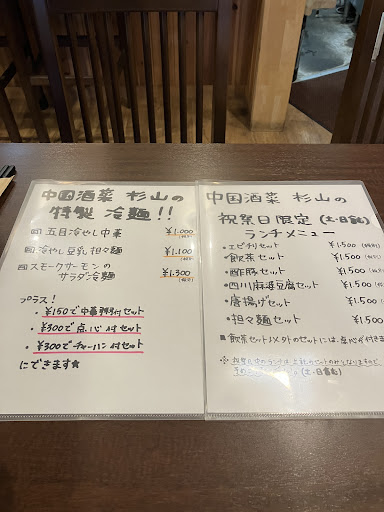 中国酒菜 杉山の
特製 冷麺!!
五目冷やし中華 ¥1,000
冷やし豆乳担々麺 ¥1,100
スモークサーモンの
サラダ冷麺 ¥1,300
プラス!
・¥150で中華粥付セット
・¥300で点心付セット
・¥300でチャーハン付セット
にできます☆
中国酒菜 杉山の
祝祭日限定(土・日含む)
ランチメニュー
・エビチリセット ¥1,500
・飲茶セット ¥1,500
・酢豚セット ¥1,500
・四川麻婆豆腐セット ¥1,500
・唐揚げセット ¥1,500
・担々麺セット ¥1,500
■飲茶セット以外のセットには、点心が付きま
(土・日含む)